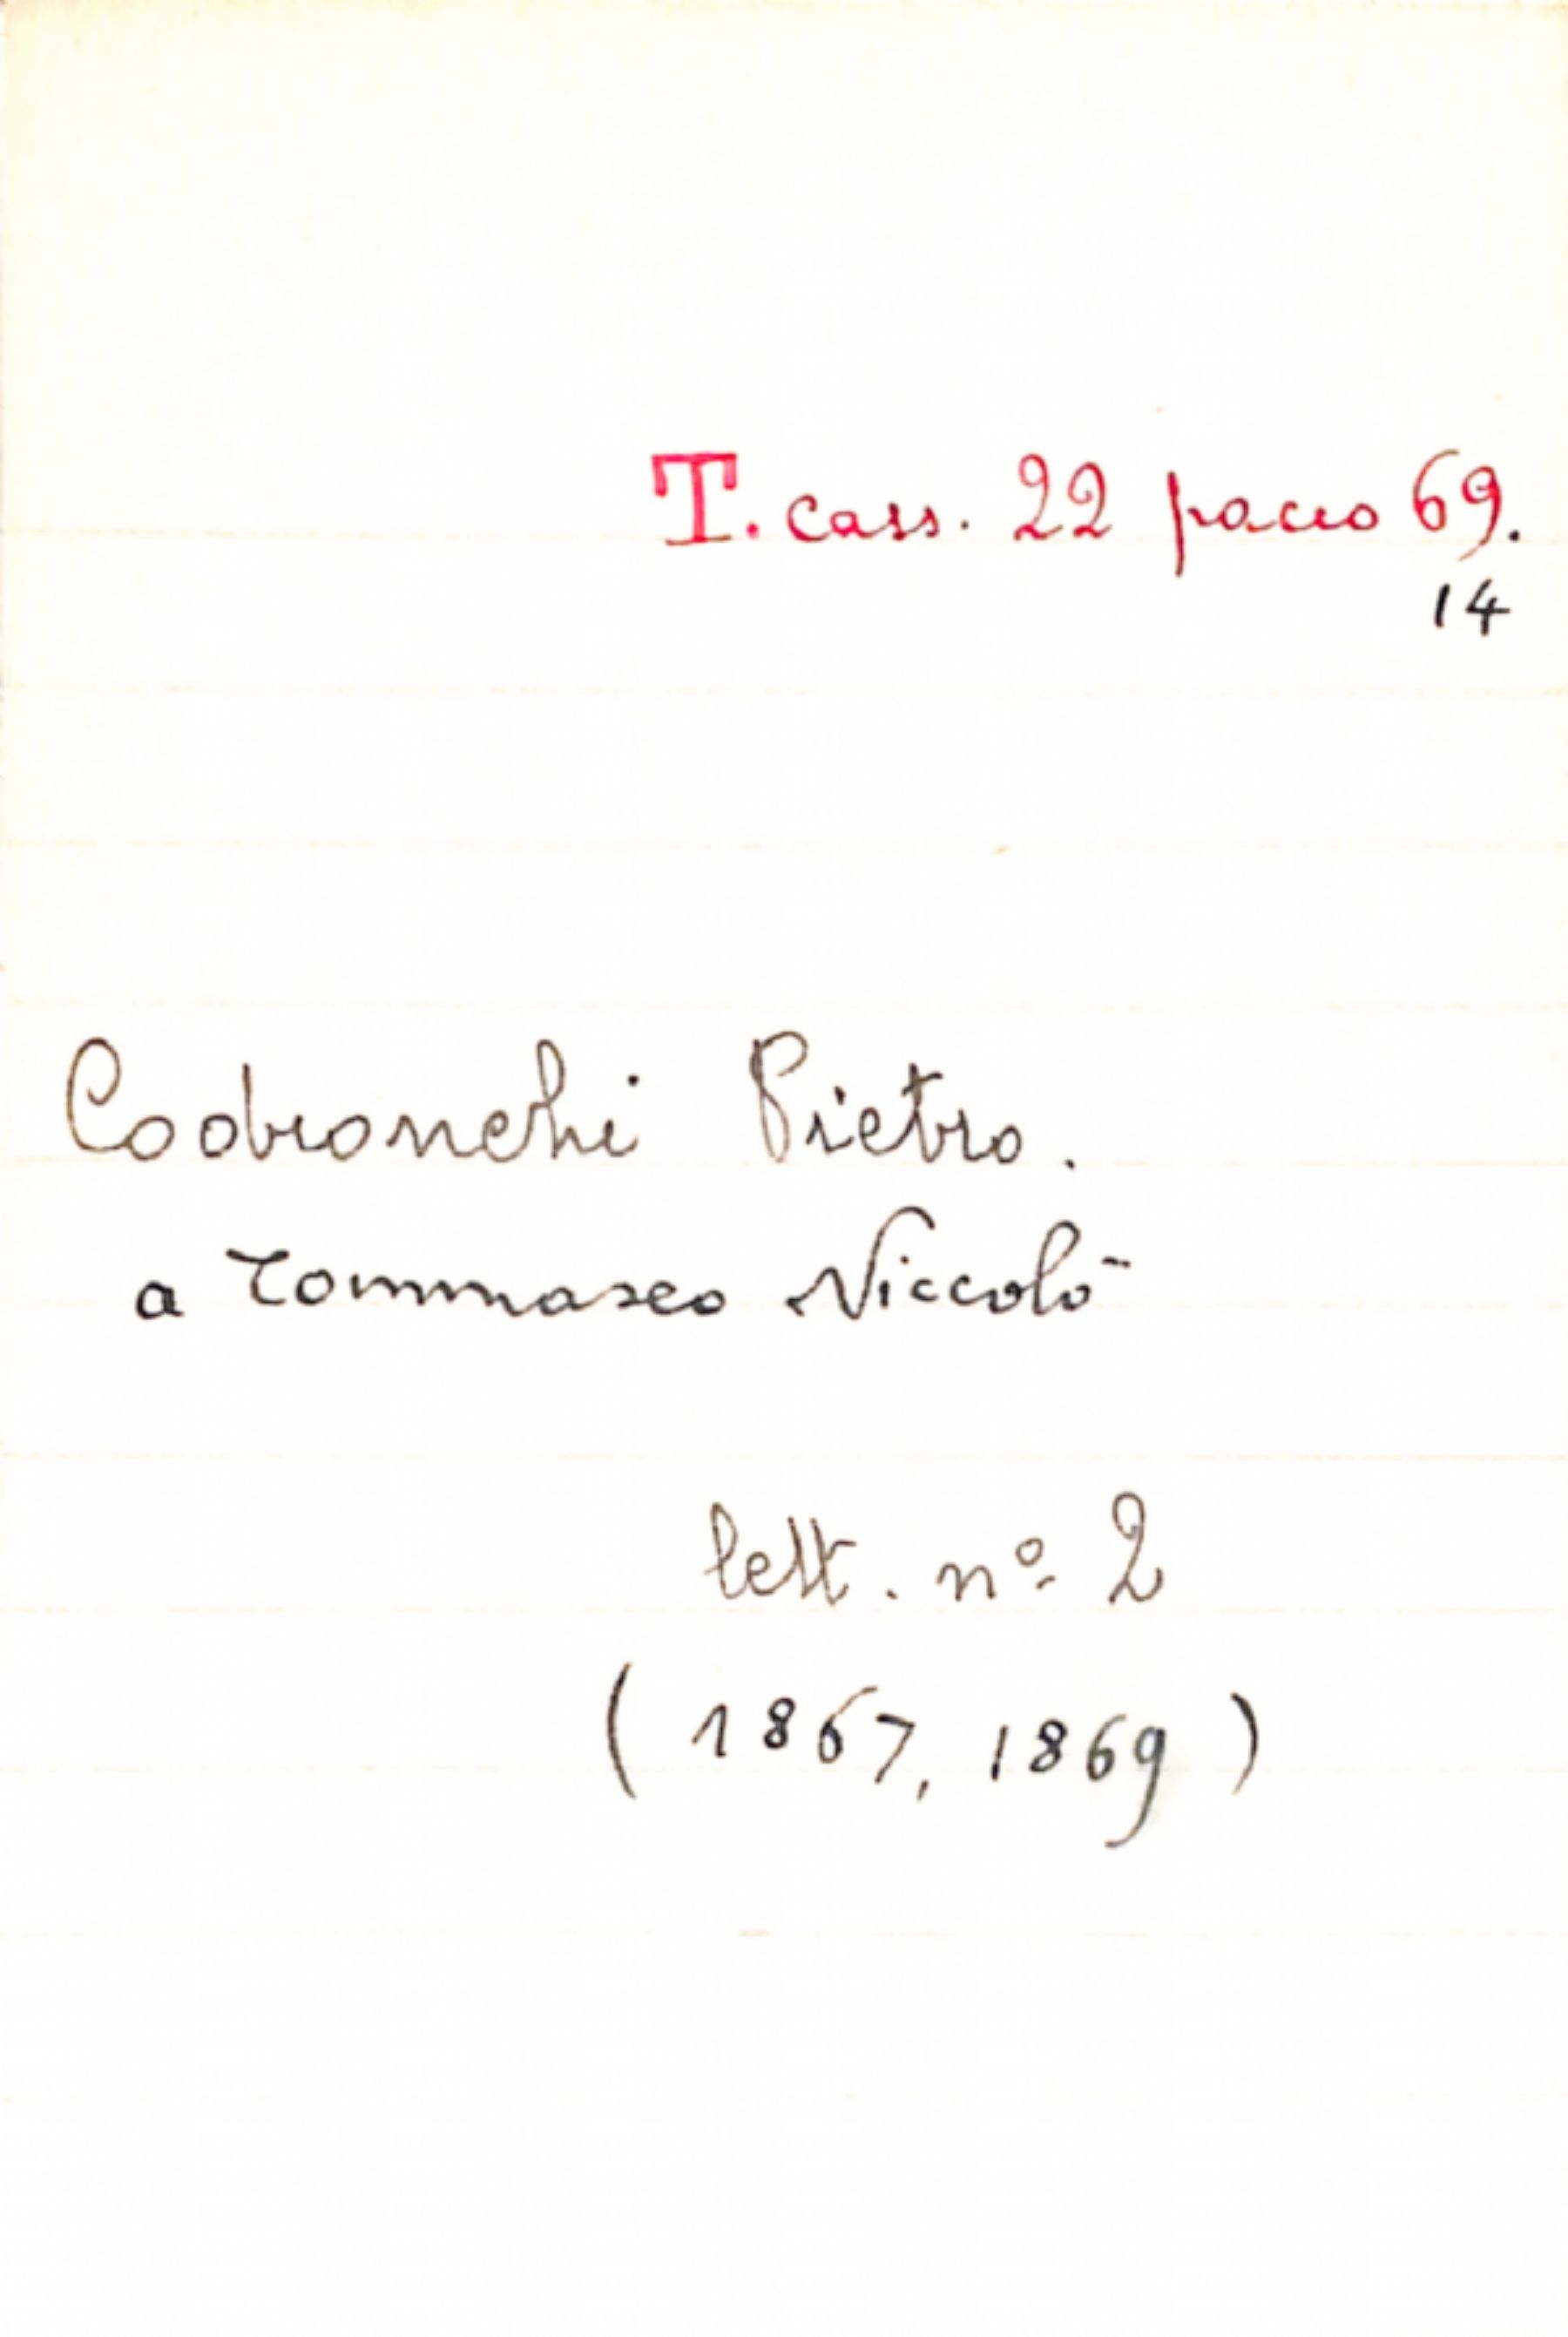 T. cass. 22 pacco 69.
14
Codronchi Pietro.
a Tommaseo Niccolò
lett. nº 2
(1867, 1869)